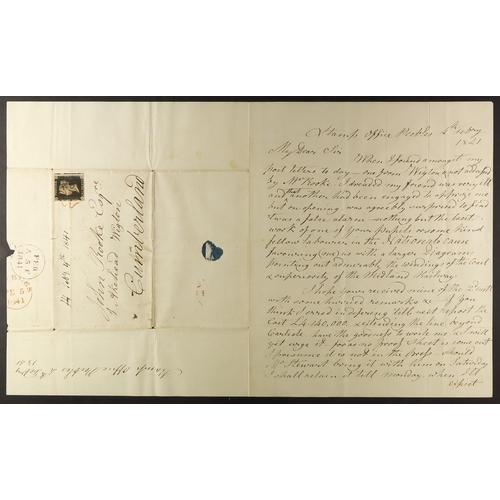 Stamp Office Peebles 4th Febry
1841
My Dear Sir
When I found amongst my
post letters to day - one from Wigton & not addressed
by Mr Rooke. I dreaded my friend was very ill
and that another had been engaged to apprize me
but on opening was agreeably surprised to find
it was a false alarm - nothing but the hand
work of one of your pupils or some kind
fellow labourer in the National cause
favouring me with a larger Diagram
pointing out admirably the windings of the Coast
& superiority of the Midland Railway.
I hope you received mine of the 2nd inst
with some hurried remarks &c - If you
think I erred in deferring till next report the
Cost £4,140,000, extending the line beyond
Carlisle have the goodness to write me & I will
yet urge it, for as no proof sheet is come out
I presume it is not in the press - should
Mr Stewart bring it with him on Saturday
I shall retain it till Monday, when I'll
expect
14 feby 4th 1841
John Rooke Esqre
Akehead Wigton
Cumberland
Stamp Office Peebles 4 Febry
1841